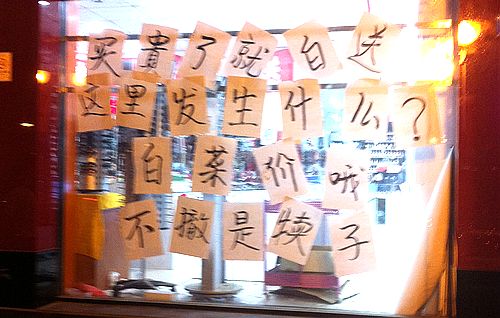 买貴了就白送
这里发生什么?
白菜价哦
不撤是犊子